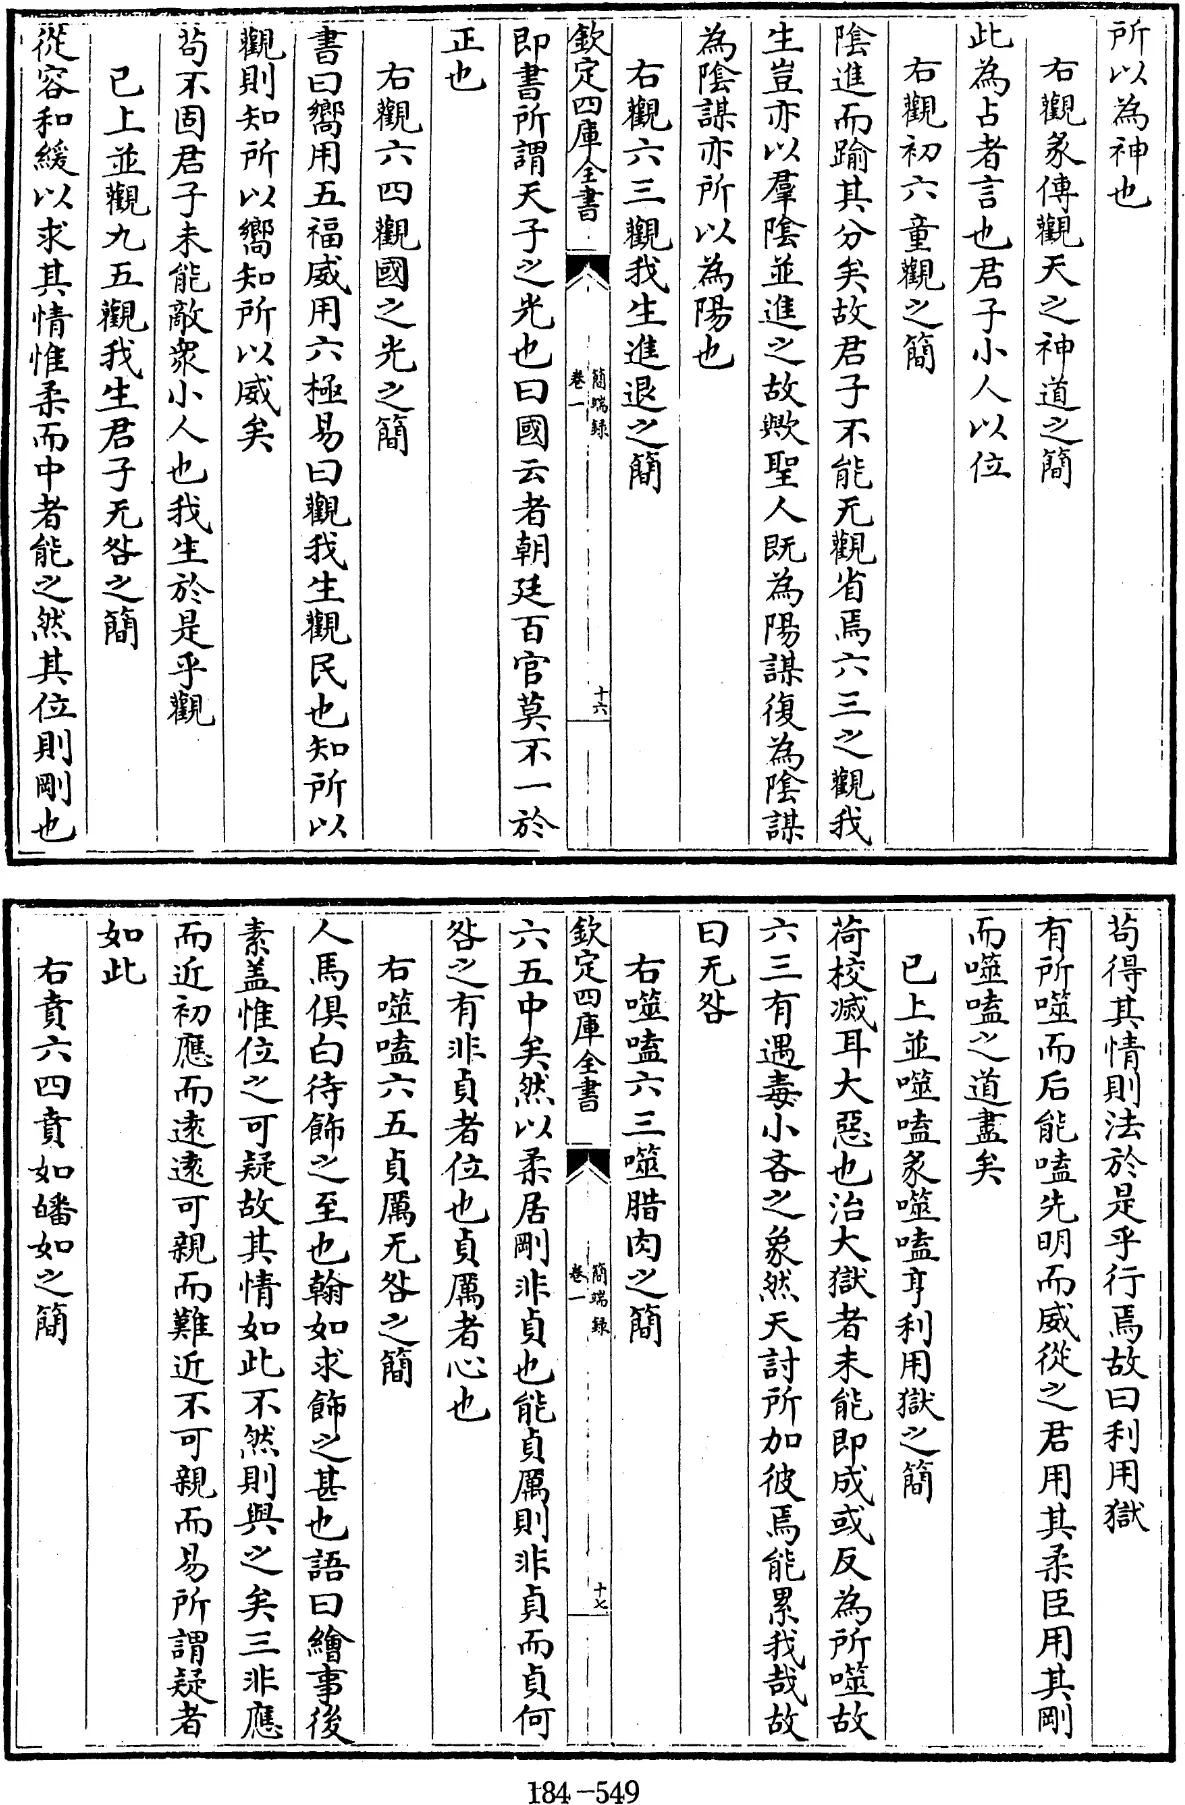 所以為神也
右觀彖傳觀天之神道之簡
此為占者言也君子小人以位
右觀初六童觀之簡
陰進而踰其分矣故君子不能无觀省焉六三之觀我
生豈亦以羣陰並進之故歟聖人既為陽謀復為陰謀
為陰謀亦所以為陽也
右觀六三觀我生進退之簡
欽定四庫全書
簡端録
卷一
十六
即書所謂天子之光也曰國云者朝廷百官莫不一於
正也
右觀六四觀國之光之簡
書曰嚮用五福威用六極易曰觀我生觀民也知所以
觀則知所以嚮知所以威矣
茍不固君子未能敵衆小人也我生於是乎觀
已上並觀九五觀我生君子无咎之簡
從容和緩以求其情惟柔而中者能之然其位則剛也
茍得其情則法於是乎行焉故曰利用獄
有所噬而后能嗑先明而威從之君用其柔臣用其剛
而噬嗑之道盡矣
已上並噬嗑彖噬嗑亨利用獄之簡
荷校滅耳大惡也治大獄者未能即成或反為所噬故
六三有遇毒小吝之象然天討所加彼焉能累我哉故
曰无咎
右噬嗑六三噬腊肉之簡
欽定四庫全書
簡端録
卷一
十七
六五中矣然以柔居剛非貞也能貞厲則非貞而貞何
咎之有非貞者位也貞厲者心也
右噬嗑六五貞厲无咎之簡
人馬俱白待飾之至也翰如求飾之甚也語曰繪事後
素盖惟位之可疑故其情如此不然則與之矣三非應
而近初應而逺逺可親而難近不可親而易所謂疑者
如此
右賁六四賁如皤如之簡
184-549